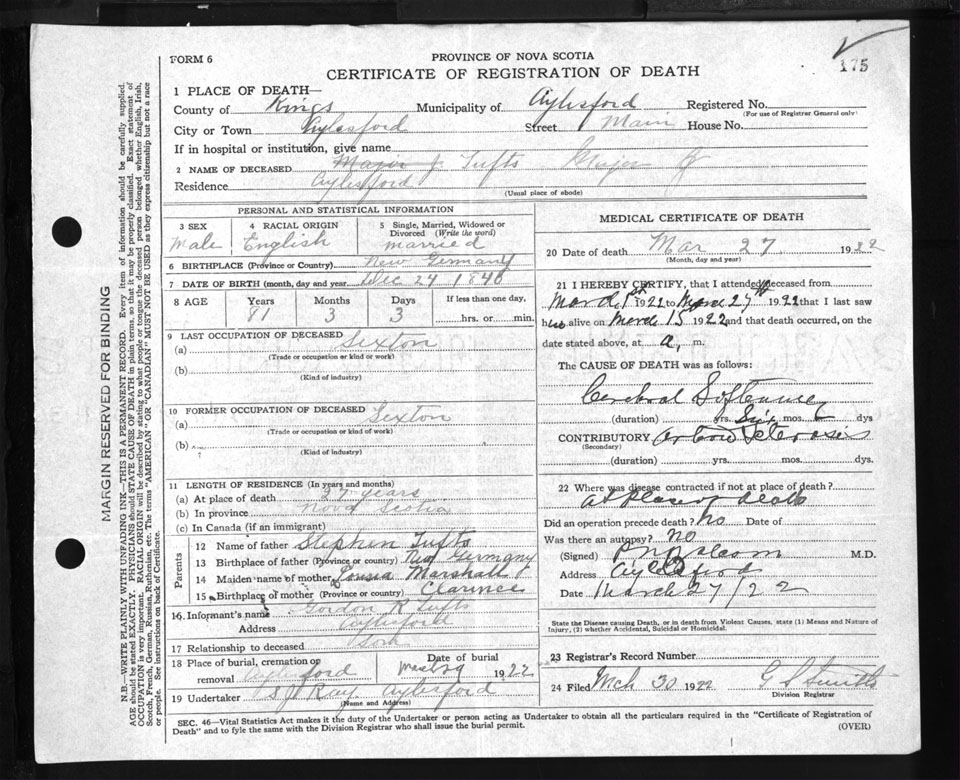 175
FORM 6
PROVINCE OF NOVA SCOTIA
CERTIFICATE OF REGISTRATION OF DEATH
1 PLACE OF DEATH—
County of Kings Municipality of Aylesford Registered No.
(For use of Registrar General only)
City or Town Aylesford Street Main House No.
If in hospital or institution, give name
2 NAME OF DECEASED Major J. Tufts Major J
Residence Aylesford
(Usual place of abode)
PERSONAL AND STATISTICAL INFORMATION
3 SEX 4 RACIAL ORIGIN 5 Single, Married, Widowed or Divorced (Write the word)
Male English married
6 BIRTHPLACE (Province or Country) New Germany
7 DATE OF BIRTH (month, day and year) Dec 24 1840
8 AGE Years Months Days If less than one day,
81 3 3 hrs. or min.
9 LAST OCCUPATION OF DECEASED
(a) Sexton
(Trade or occupation or kind or work)
(b)
(Kind of industry)
10 FORMER OCCUPATION OF DECEASED
(a) Sexton
(Trade or occupation or kind of work)
(b)
(Kind of industry)
11 LENGTH OF RESIDENCE (In years and months)
(a) At place of death 37 years
(b) In province Nova Scotia
(c) In Canada (if an immigrant)
Parents
12 Name of father Stephen Tufts
13 Birthplace of father (Province or country) New Germany
14 Maiden name of mother Marshall
15 Birthplace of mother (Province or country) Clarence
16. Informant's name Gordon R Tufts
Address Aylesford
17 Relationship to deceased Son
18 Place of burial, cremation or removal Aylesford Date of burial 1922
19 Undertaker Ray Aylesford
(Name and Address)
MEDICAL CERTIFICATE OF DEATH
20 Date of death Mar 27 1922
(Month, day and year)
21 I HEREBY CERTIFY, that I attended deceased from
March 1st 1922 to March 27th 1922 that I last saw
him alive on March 15 1922 and that death occurred, on
date stated above, at a, m.
The CAUSE OF DEATH was as follows:
Cerebral Softening
(duration) yrs. Six mos. dys
CONTRIBUTORY Arterio Sclerosis
(Secondary)
(duration) yrs. mos. dys.
22 Where was disease contracted if not at place of death?
At place of death
Did an operation precede death? No Date of
Was there an autopsy? No
(Signed) Balcom M.D.
Address Aylesford
Date March 27/22
State the Disease causing Death, or in death from Violent Causes, state (1) Means and Nature of Injury, (2) whether Accidental, Suicidal or Homicidal.
23 Registrar's Record Number
24 Filed Mch 30 1922 G S Smith
Division Registrar
SEC. 46—Vital Statistics Act makes it the duty of the Undertaker or person acting as Undertaker to obtain all the particulars required in the "Certificate of Registration of
Death" and to fyle the same with the Division Registrar who shall issue the burial permit. (OVER)
MARGIN RESERVED FOR BINDING
N.B.—WRITE PLAINLY WITH UNFADING INK—THIS IS A PERMANENT RECORD. Every item of information should be carefully supplied.
AGE should be stated EXACTLY. PHYSICIANS should STATE CAUSE OF DEATH in plain terms, so that it may be properly classified. Exact statement of
OCCUPATION is very important. RACIAL ORIGIN will be described by stating to what people or tongue the deceased person belonged whether English, Irish,
Scotch, French, German, Russian, Ruthenian, etc. The terms "AMERICAN" OR "CANADIAN" MUST NOT BE USED as they express citizenship but not a race
or people. See instructions on back of Certificate.